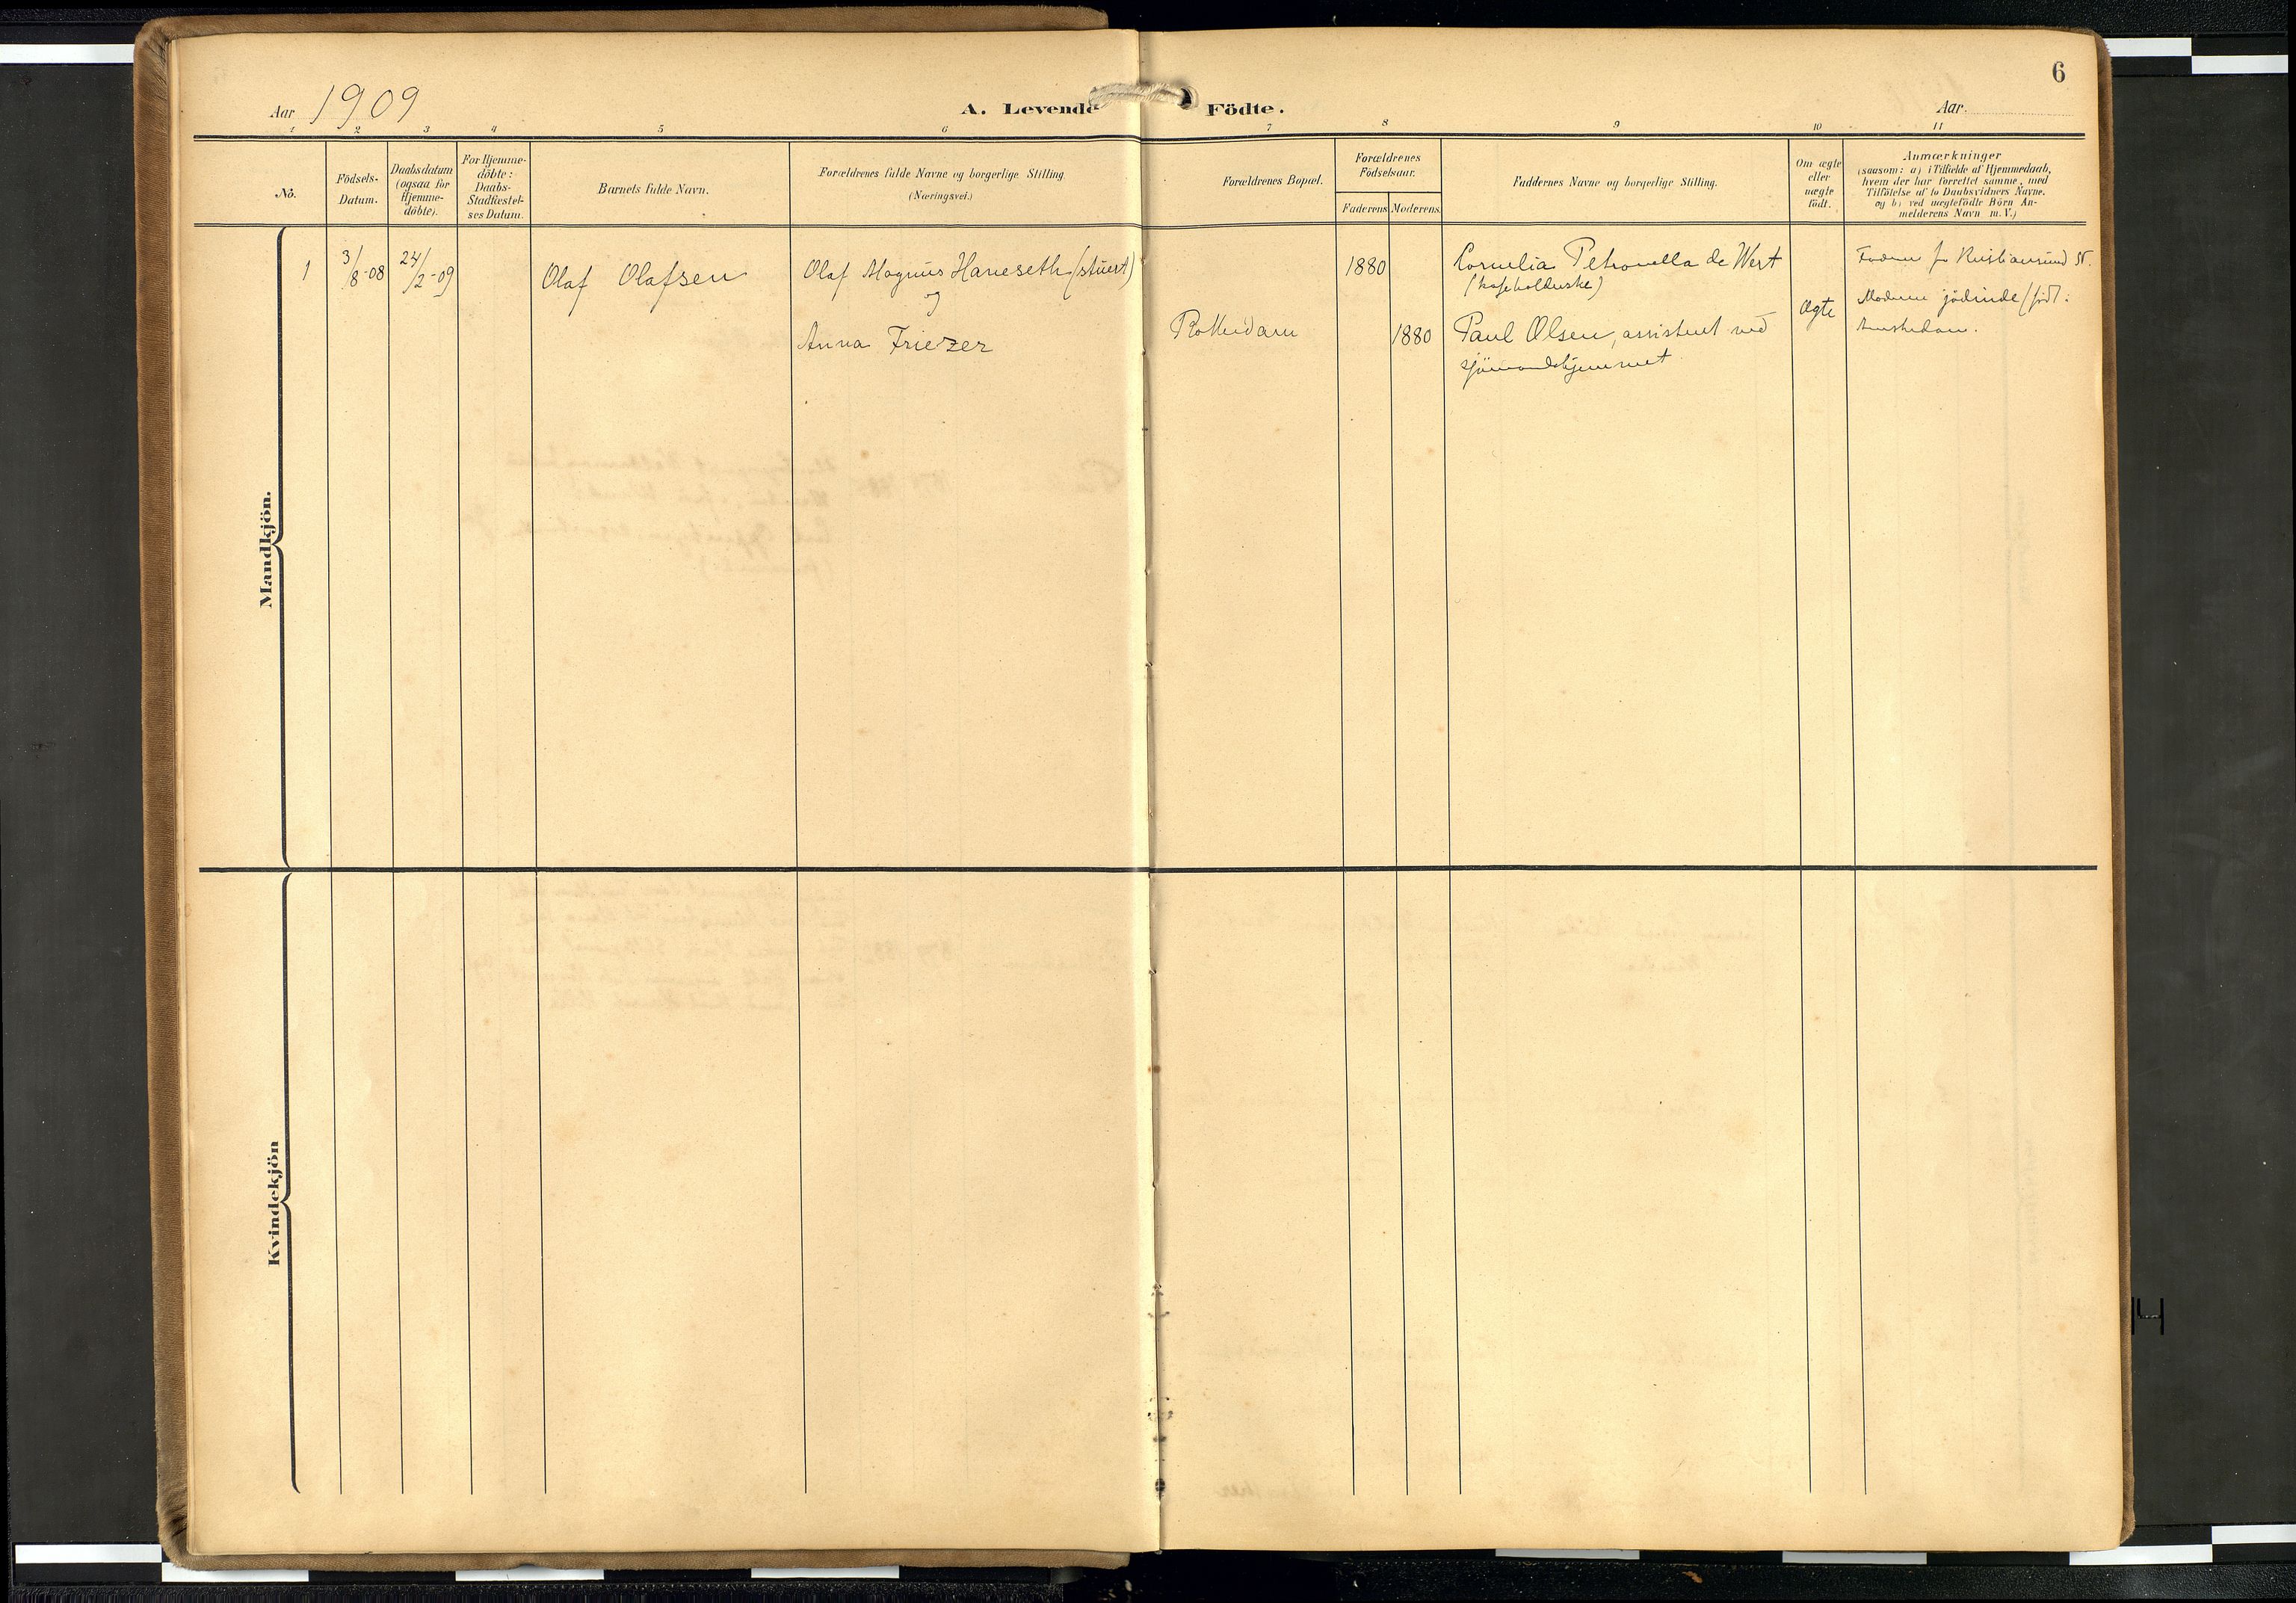 6
Aar 1909
A. Levende Födte.
Aar.
1 2 3 4 5 6 7 8 9 10 11
No.
Födsels-
Datum.
Daabsdatum
(ogsaa for
Hjemme-
döbte).
For Hjemme-
döbte:
Daabs-
Stadfæstel-
ses Datum.
Barnets fulde Navn.
Forældrenes fulde Navne og borgerlige Stilling
(Næringsvei.)
Forældrenes Bopæl.
Forældrenes
Födselsaar.
Faderens Moderens.
Faddernes Navne og borgerlige Stilling.
Om ægte
eller
uægte
født.
Anmærkninger
(saasom: a) i Tilfælde af Hjemmedaab,
hvem der har forrettet samme, med
Tilföielse af to Daabsvidners Navne.
og b) ved uægtefödte Börn An-
melderens Navn m. V.)
Mandkjön.
1
3/8-08
24/2-09
Olaf Olafsen
Olaf Magnus Haneseth (stuert)
og
Anna Friezer
Rotterdam
1880
1880
Cornelia Petronella de Wert
Paul Olsen, assistent ved
sjömandshjemmet
Ægte
Faderen fr Kristiansund N.
Moderen jödinde (född:
Amsterdam.
Kvindekjön
14